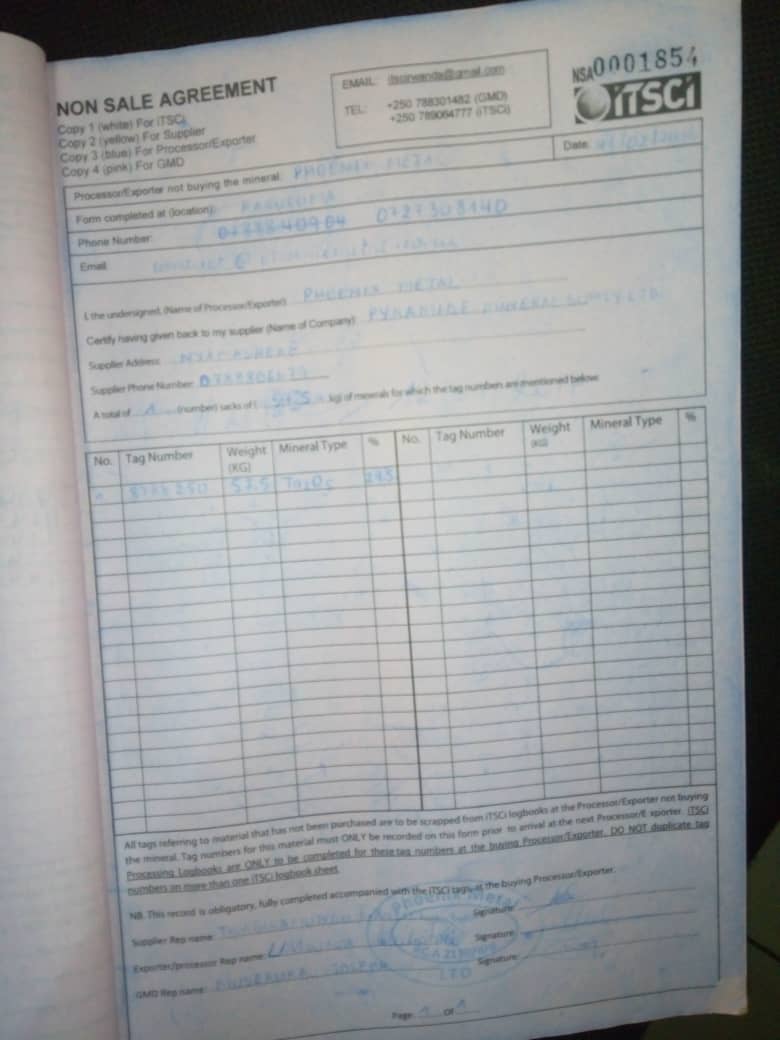 NON SALE AGREEMENT
Copy 1 (white) For iTSCi
Copy 2 (yellow) For Supplier
Copy 3 (blue) For Processor/Exporter
Copy 4 (pink) For GMD
EMAIL: itscirwanda@gmail.com
TEL: +250 788301482 (GMD)
+250 789064777 (iTSCi)
NSA0001854
iTSCi
Date:
Processor/Exporter not buying the mineral: PHOENIX METAL
Form completed at (location):
Phone Number: 0727303140
Email:
I, the undersigned, (Name of Processor/Exporter) PHOENIX METAL
Certify having given back to my supplier (Name of Company): PYRAMIDE MINERAL SUPPLY LTD
Supplier Address:
Supplier Phone Number:
A total of 1 (number) sacks of ( 57.5 kg) of minerals for which the tag numbers are mentioned below
No. Tag Number Weight (KG) Mineral Type % No. Tag Number Weight (KG) Mineral Type %
57.5 Ta2O5
All tags referring to material that has not been purchased are to be scrapped from iTSCi logbooks at the Processor/Exporter not buying
the mineral. Tag numbers for this material must ONLY be recorded on this form prior to arrival at the next Processor/E xporter. iTSCi
Processing Logbooks are ONLY to be completed for these tag numbers at the buying Processor/Exporter. DO NOT duplicate tag
numbers on more than one iTSCi logbook sheet.
NB. This record is obligatory, fully completed accompanied with the iTSCi tags, at the buying Processor/Exporter.
Supplier Rep name: Signature:
Exporter/processor Rep name: Signature:
GMD Rep name: JOSEPH Signature:
Phoenix Metal
LTD
Page: 1 Of 1